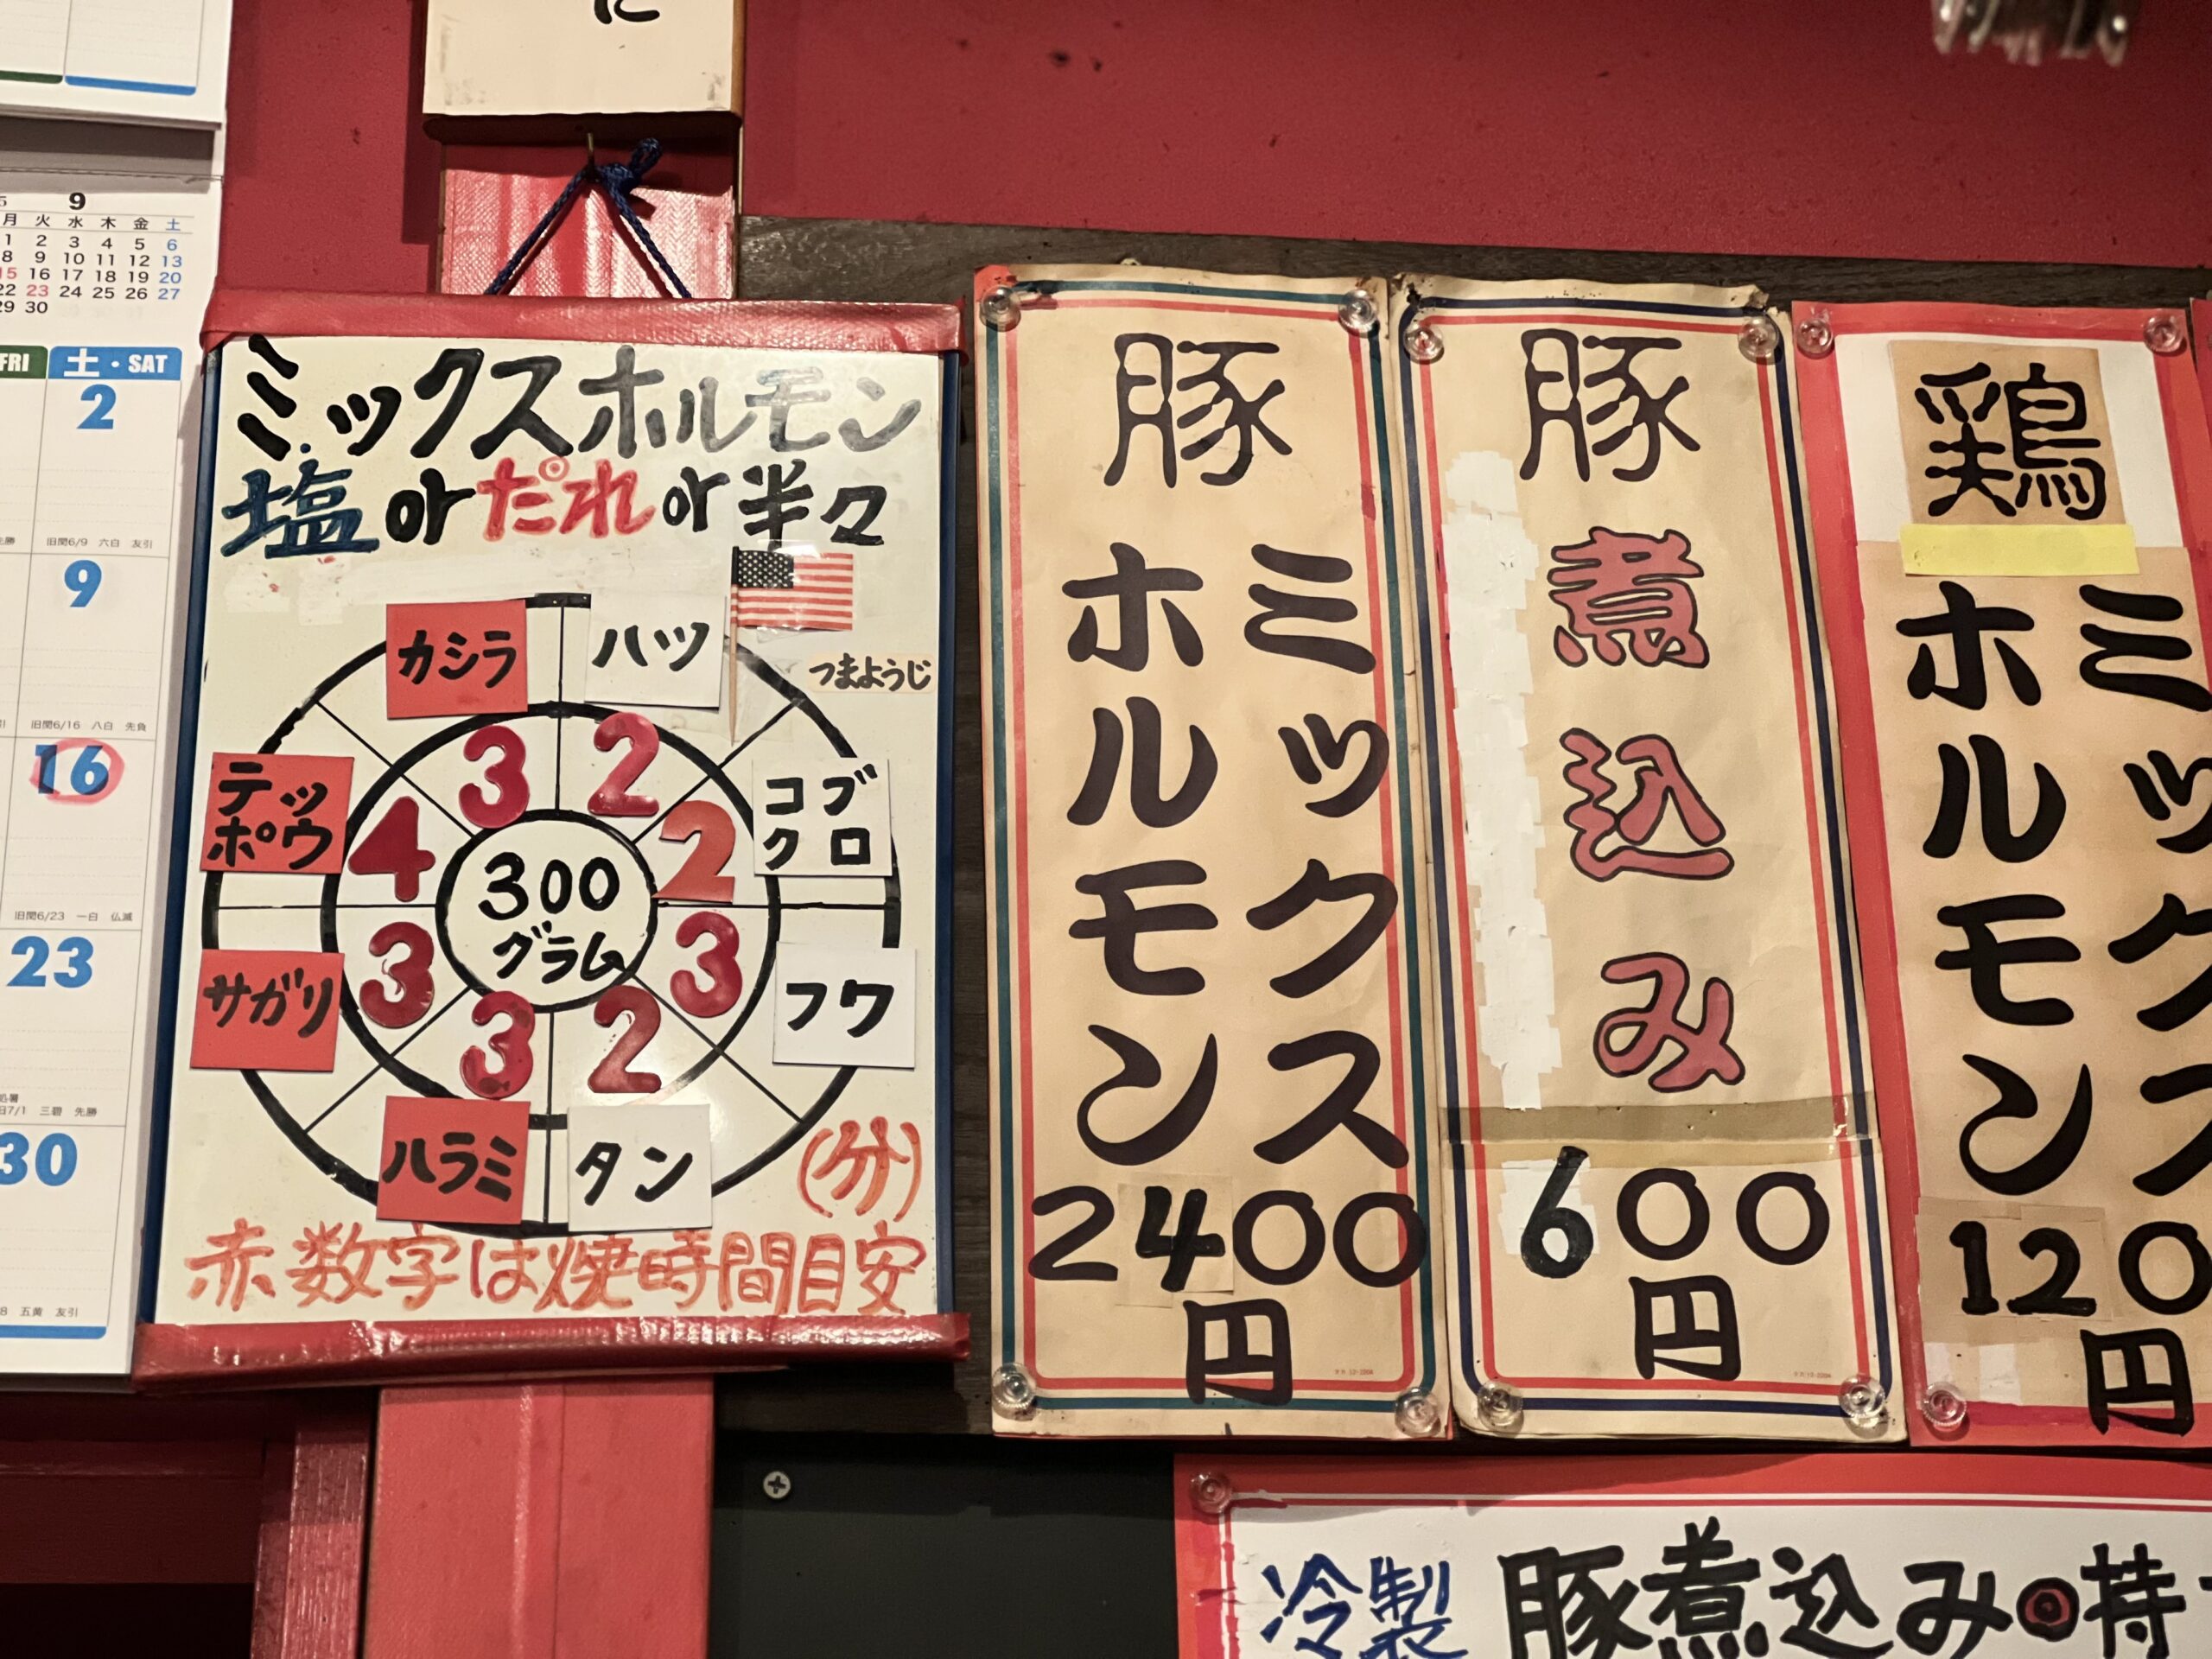 に
9
月 火 水 木 金 土
1 2 3 4 5 6
8 9 10 11 12 13
15 16 17 18 19 20
22 23 24 25 26 27
29 30
FRI
土・SAT
2
旧閏6/9 六白 友引
9
旧閏6/16 八白 先負
16
旧閏6/23 一白 仏滅
23
処暑
旧7/1 三碧 先勝
30
五黄 友引
ミックスホルモン
塩orだれor半々
つまようじ
カシラ
ハツ
テッ
ポウ
コブ
クロ
サガリ
フワ
ハラミ
タン
3
2
4
2
3
3
3
2
300
グラム
(分)
赤数字は焼時間目安
豚
ミックス
ホルモン
2400
円
豚
煮
込
み
600
円
鶏
ミックス
ホルモン
120
円
冷製 豚煮込み 持